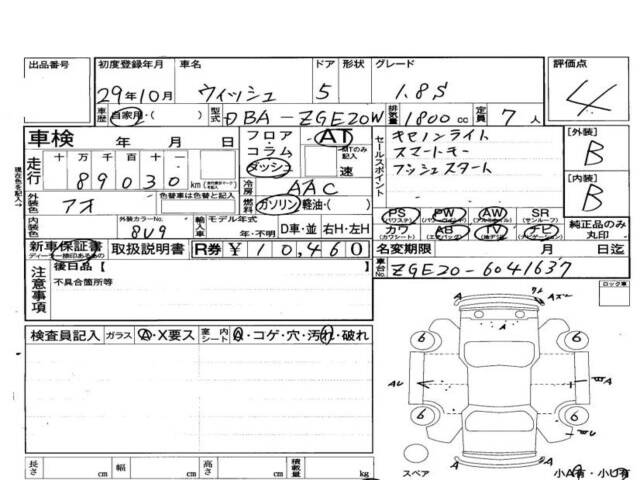 出品番号
初度登録年月 車名 ドア 形状 グレード 評価点
29年10月 ウィッシュ 5 1.8S 4
車歴 自家用・( ) 型式 DBA-ZGE20W 排気量 1800 cc 定員 7 人
車検 年 月 日
フロア・コラム ダッシュ AT 速
セールスポイント
キセノンライト
スマートキー
プッシュスタート
[外装] B
[内装] B
現在値を記入→
走行 十 万 千 百 十 一
89030 km
冷房 AAC
外装色 アオ 色替車は色替と記入
燃料 ガソリン・軽油・( )
PS (パワステ) PW (パワーウインド) AW (アルミホイル) SR (サンルーフ)
カワ (カワシート) AB (エアバッグ) TV ナビ
純正品のみ丸印
内装色 外装カラーNo. 8V9 輸入車 モデル年式 年・不明 D車・並 右H・左H
新車保証書 取扱説明書 R券 ¥10,460
名変期限 月 日迄
車台No. ZGE20-6041637
注意事項
後日品【
不具合箇所等
ロック車
検査員記入 ガラス A・X要ス 室内シート A・コゲ・穴・汚れ・破れ
A A
6 6
AU A
6 6
A
スペア
小A有・小U有
長さ cm 幅 cm 高さ cm 積載量 kg